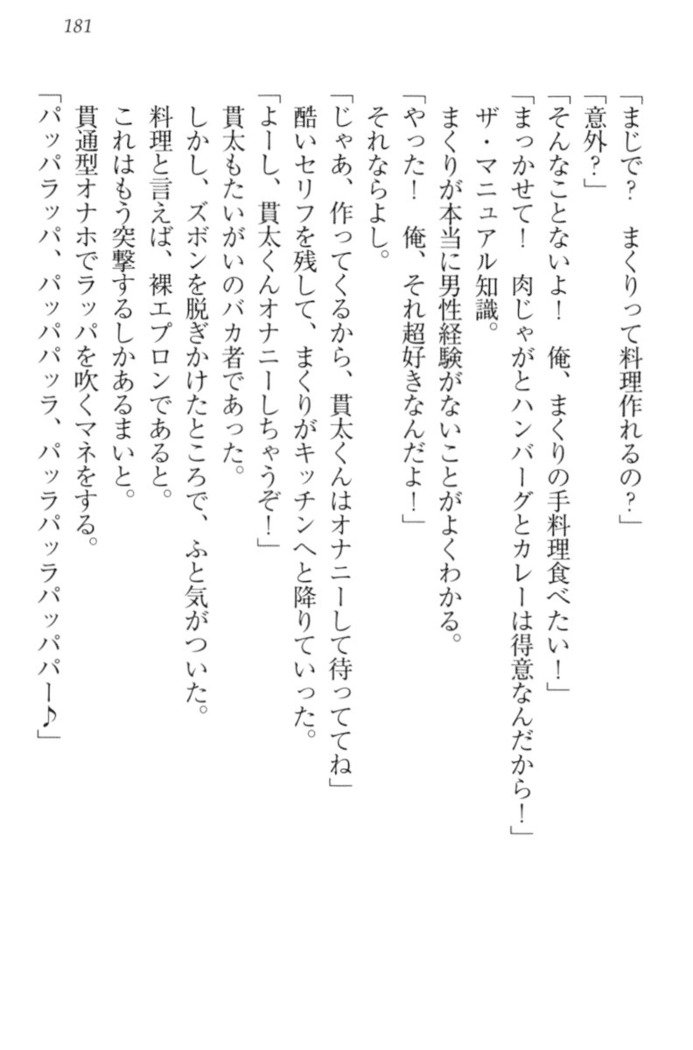 181
「まじで？　まくりって料理作れるの？」
「意外？」
「そんなことないよ！　俺、まくりの手料理食べたい！」
「まっかせて！　肉じゃがとハンバーグとカレーは得意なんだから！」
ザ・マニュアル知識。
まくりが本当に男性経験がないことがよくわかる。
「やった！　俺、それ超好きなんだよ！」
それならよし。
「じゃあ、作ってくるから、貫太くんはオナニーして待っててね」
酷いセリフを残して、まくりがキッチンへと降りていった。
「よーし、貫太くんオナニーしちゃうぞ！」
貫太もたいがいのバカ者であった。
しかし、ズボンを脱ぎかけたところで、ふと気がついた。
料理と言えば、裸エプロンであると。
これはもう突撃するしかあるまいと。
貫通型オナホでラッパを吹くマネをする。
「パッパラッパ、パッパパッラ、パッラパッラパッパパー♪」